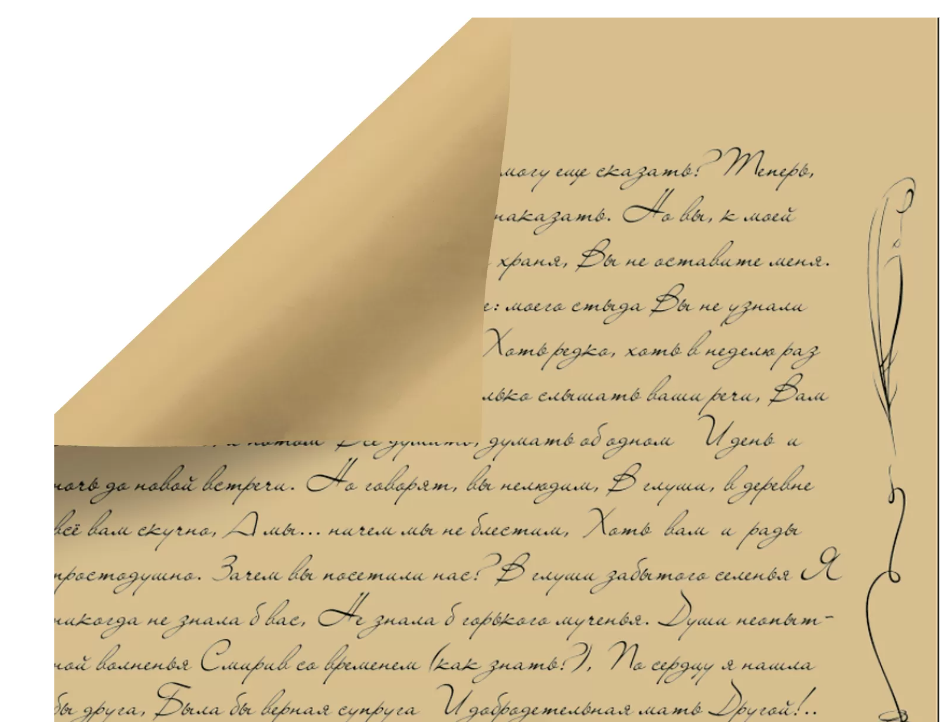 могу еще сказать? Теперь,
наказать. Но вы, к моей
храня, Вы не оставите меня.
: моего стыда Вы не узнали
Хоть редко, хоть в неделю раз
слышать ваши речи, Вам
и потом Все думать, думать об одном И день и
ночь до новой встречи. Но говорят, вы нелюдим, В глуши, в деревне
всё вам скучно, А мы... ничем мы не блестим, Хоть вам и рады
простодушно. Зачем вы посетили нас? В глуши забытого селенья Я
никогда не знала б вас, Не знала б горького мученья. Души неопыт-
ной волненья Смирив со временем (как знать?), По сердцу я нашла
бы друга, Была бы верная супруга И добродетельная мать Другой!..